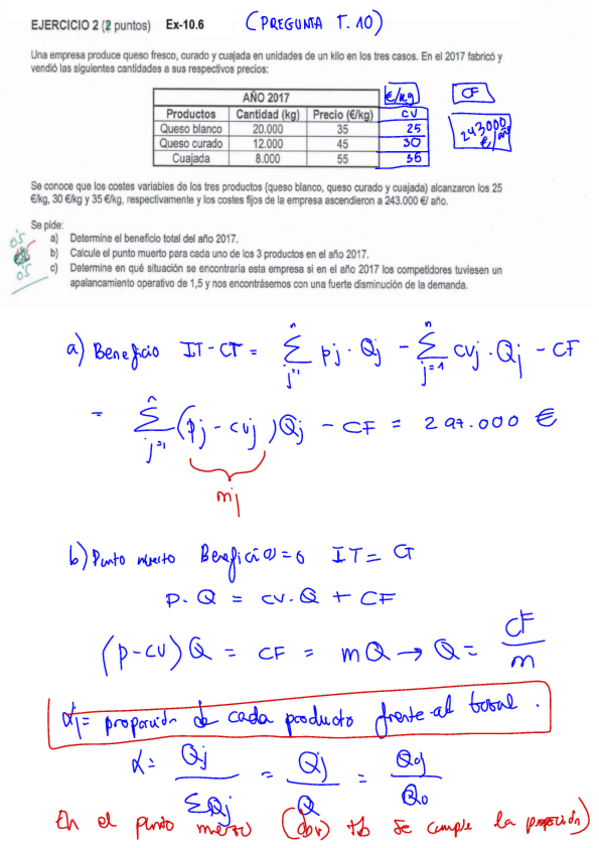 EJERCICIO 2 (2 puntos) Ex-10.6 (PREGUNTA T. 10)
Una empresa produce queso fresco, curado y cuajada en unidades de un kilo en los tres casos. En el 2017 fabricó y
vendió las siguientes cantidades a sus respectivos precios:
AÑO 2017 €/kg CF
Productos Cantidad (kg) Precio (€/kg) CV 243.000 €/año
Queso blanco 20.000 35 25
Queso curado 12.000 45 30
Cuajada 8.000 55 35
Se conoce que los costes variables de los tres productos (queso blanco, queso curado y cuajada) alcanzaron los 25
€/kg, 30 €/kg y 35 €/kg, respectivamente y los costes fijos de la empresa ascendieron a 243.000 €/ año.
Se pide:
0'5 a) Determine el beneficio total del año 2017.
b) Calcule el punto muerto para cada uno de los 3 productos en el año 2017.
0'5 c) Determine en qué situación se encontraría esta empresa si en el año 2017 los competidores tuviesen un
apalancamiento operativo de 1,5 y nos encontrásemos con una fuerte disminución de la demanda.
a) Beneficio IT-CT = Σ pj · Qj - Σ cvj · Qj - CF
= Σ (pj - cvj) Qj - CF = 297.000 €
mj
b) Punto muerto Beneficio = 0 IT = CT
P · Q = CV · Q + CF
(P-CV) Q = CF = mQ → Q = CF/m
αj = proporción de cada producto frente al total.
α = Qj/ΣQj = Qj/Q = Qoj/Qo
En el punto muerto (dbv) tb se cumple la proporción)